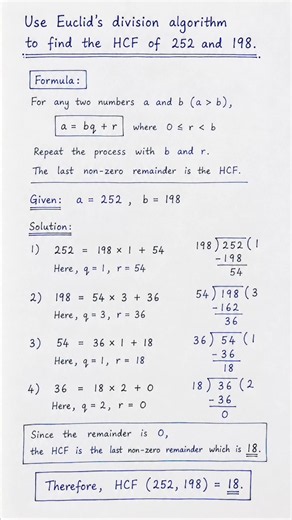 Use Euclid's division algorithm
to find the HCF of 252 and 198.
Formula:
For any two numbers a and b (a > b),
a = bq + r where 0 ≤ r < b
Repeat the process with b and r.
The last non-zero remainder is the HCF.
Given: a = 252 , b = 198
Solution:
1) 252 = 198 × 1 + 54
Here, q = 1, r = 54
198) 252 (1
-198
54
2) 198 = 54 × 3 + 36
Here, q = 3, r = 36
54) 198 (3
-162
36
3) 54 = 36 × 1 + 18
Here, q = 1, r = 18
36) 54 (1
-36
18
4) 36 = 18 × 2 + 0
Here, q = 2, r = 0
18) 36 (2
-36
0
Since the remainder is 0,
the HCF is the last non-zero remainder which is 18.
Therefore, HCF (252, 198) = 18.